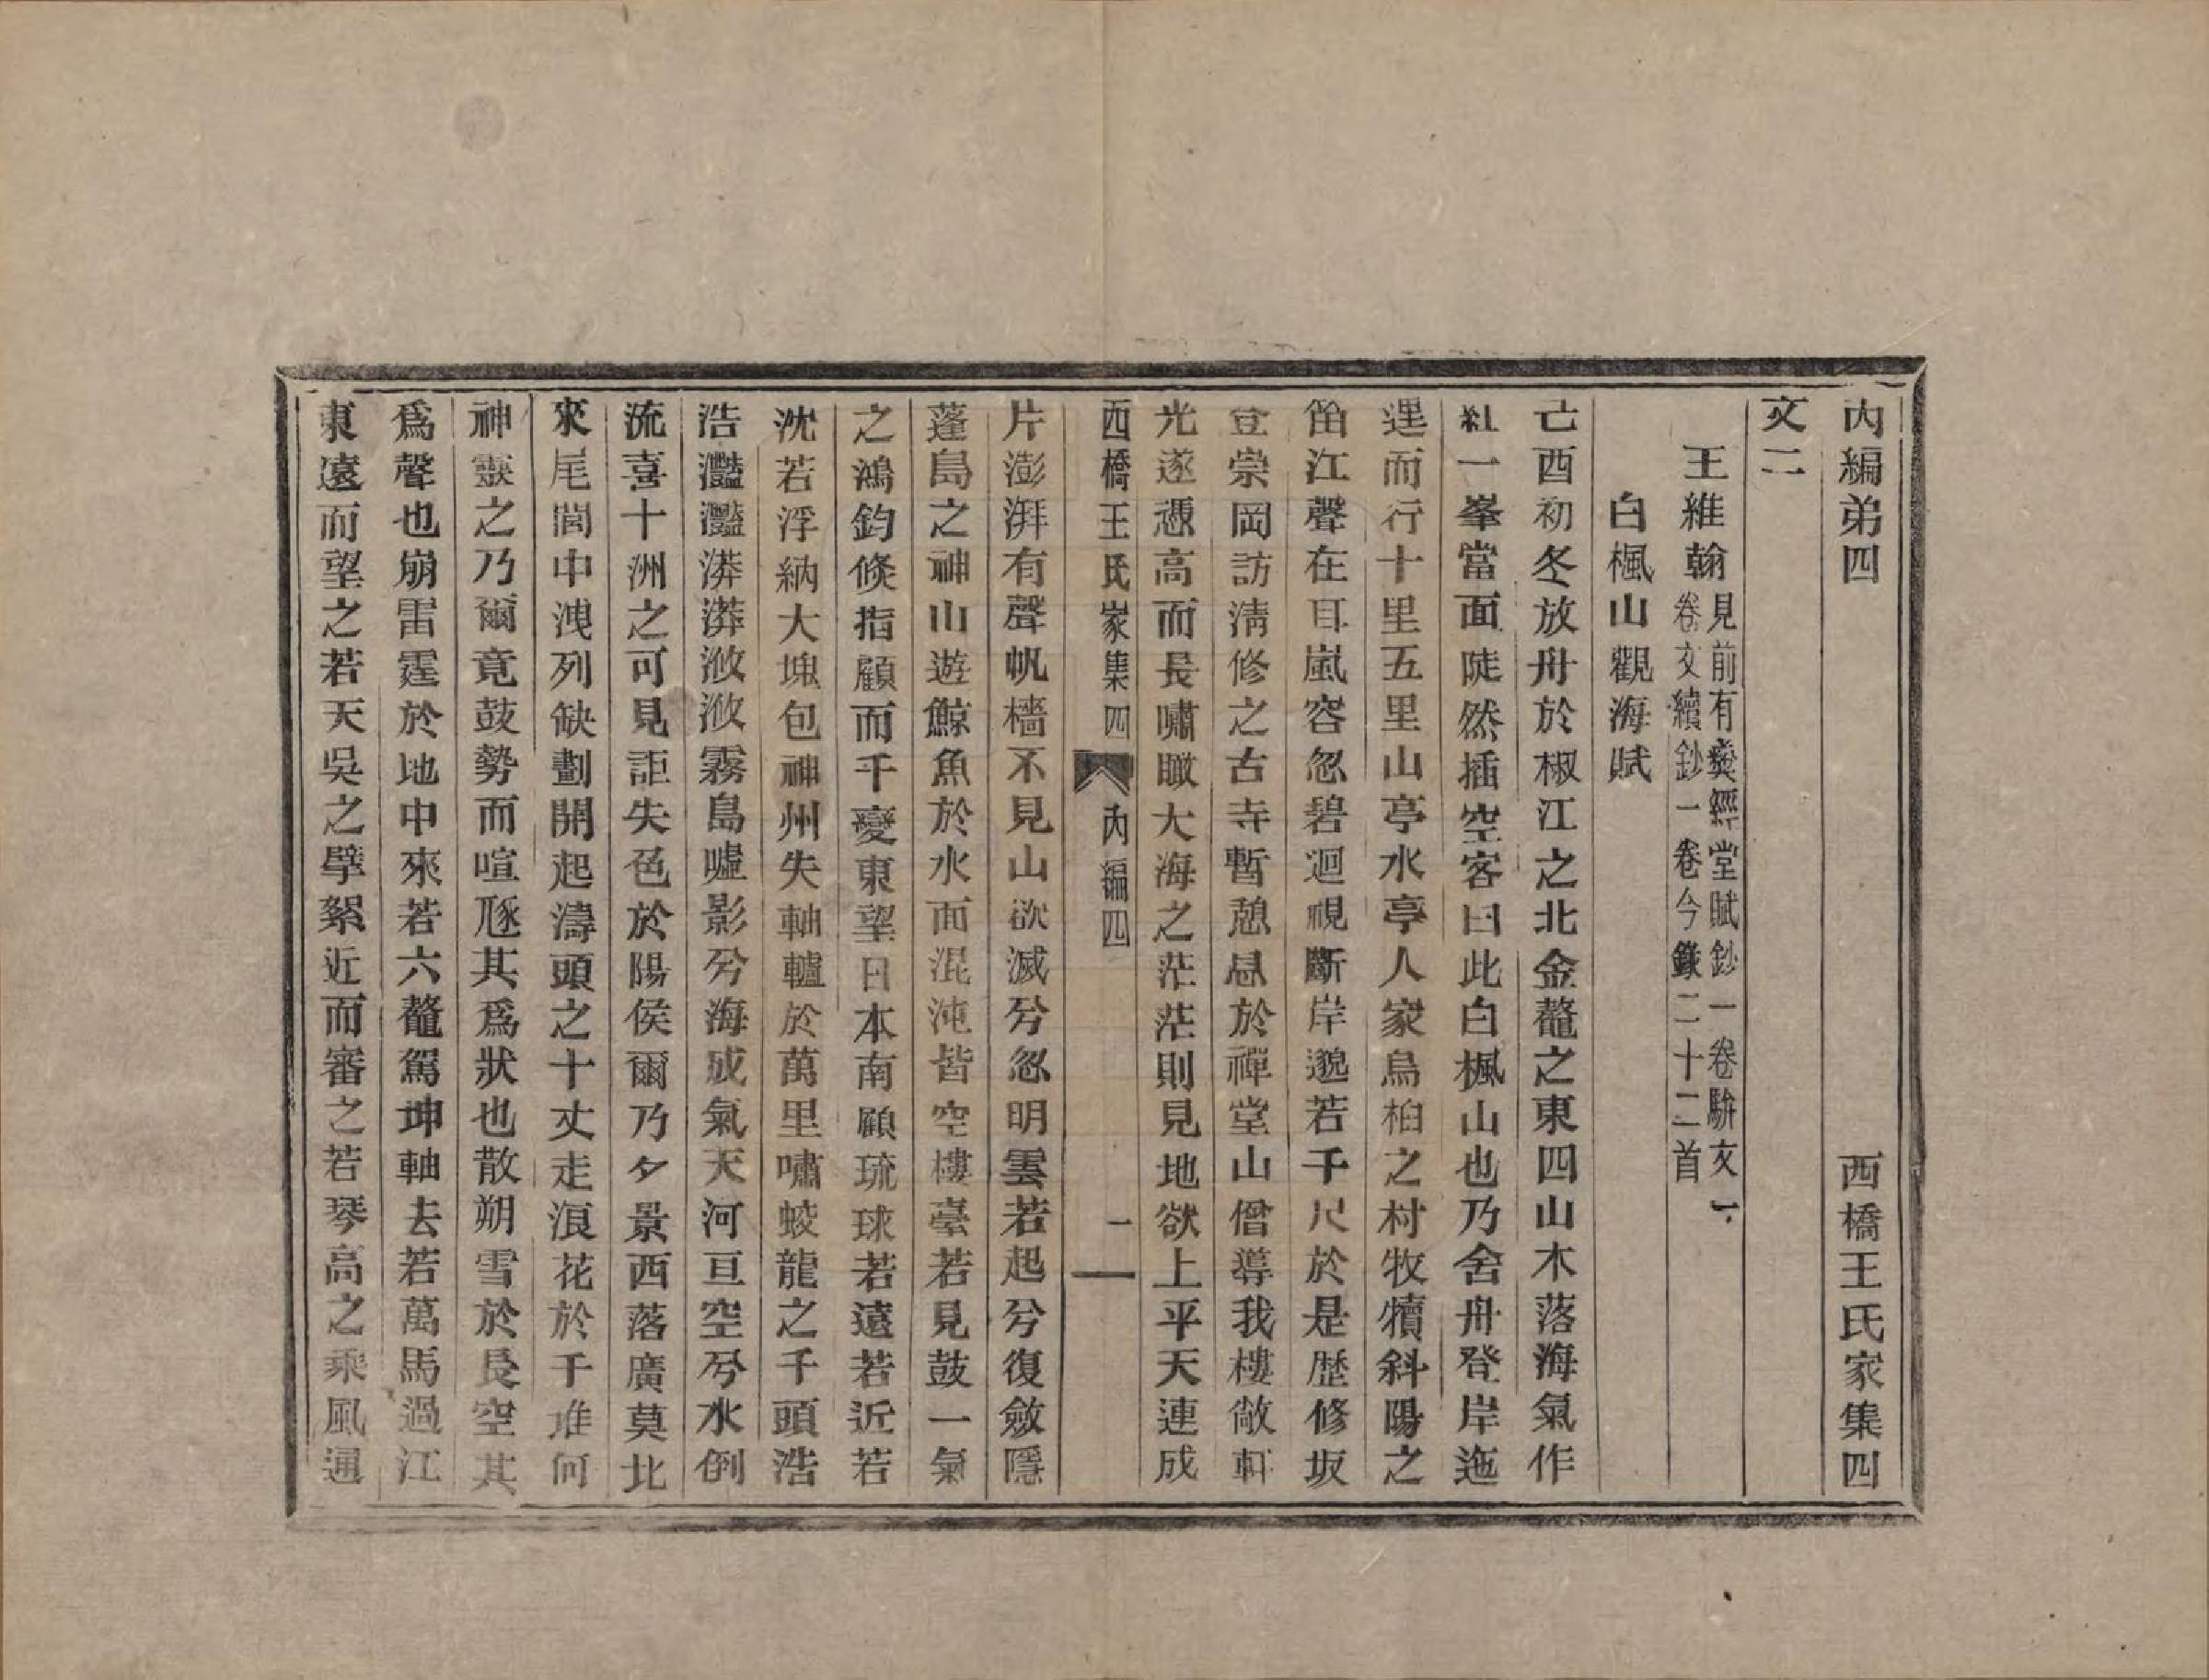 內編弟四　西橋王氏家集四
文二
王維翰見前有彝經堂賦鈔一卷駢文一
卷文續鈔一卷今錄二十二首
白楓山觀海賦
己酉初冬放舟於椒江之北金鼇之東四山木落海氣作
紅一峯當面陡然插空客曰此白楓山也乃舍舟登岸迤
邐而行十里五里山亭水亭人家烏桕之村牧犢斜陽之
笛江聲在耳嵐容忽碧迴視斷岸邈若千尺於是歷修坂
登崇岡訪淸修之古寺暫憩息於禪堂山僧導我樓敞軒
光遂憑高而長嘯瞰大海之茫茫則見地欲上平天連成
西橋王氏家集四　內編四　一
片澎湃有聲帆檣不見山欲滅兮忽明雲若起兮復斂隱
蓬島之神山遊鯨魚於水面混沌皆空樓臺若見鼓一氣
之鴻鈞倏指顧而千變東望日本南顧琉球若遠若近若
沈若浮納大塊包神州失軸轤於萬里嘯蛟龍之千頭浩
浩灩灩漭漭滧滧霧島噓影兮海成氣天河亘空兮水倒
流喜十洲之可見詎失色於陽侯爾乃夕景西落廣莫北
來尾閭中洩列缺劃開起濤頭之十丈走浪花於千堆何
神靈之乃爾竟鼓勢而喧豗其爲狀也散朔雪於長空其
爲聲也崩雷霆於地中來若六鼇駕坤軸去若萬馬過江
東遠而望之若天吳之擘絮近而審之若琴高之乘風通